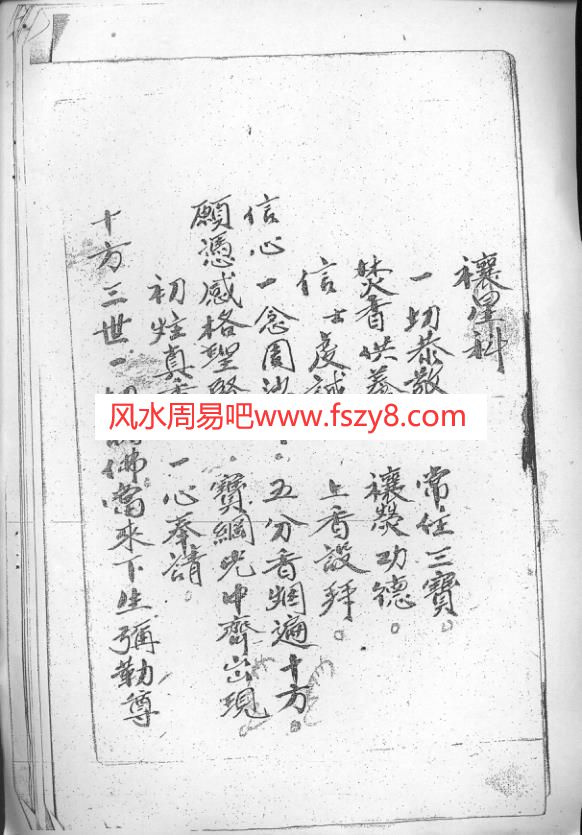 禳星科
一切恭敬 常住三寶。
焚香供養 禳熒功德。
信士虔誠 上香設拜。
信心一念周沙 五分香烟遍十方。
願憑感格聖賢 寶網光中齊出現
初炷真香 一心奉請。
十方三世一切諸佛當來下生彌勒尊
风水周易吧www.fszy8.com